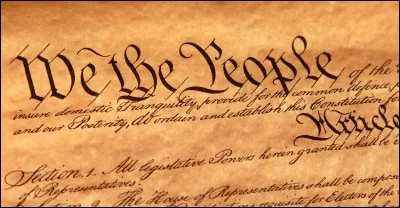 We the People of the
insure domestic Tranquility, provide for the common defence,
and our Posterity, do ordain and establish this Constitution for
Article
Section 1. All legislative Powers herein granted shall be
of Representatives.
The House of Representatives shall be
requisite for Electors of the